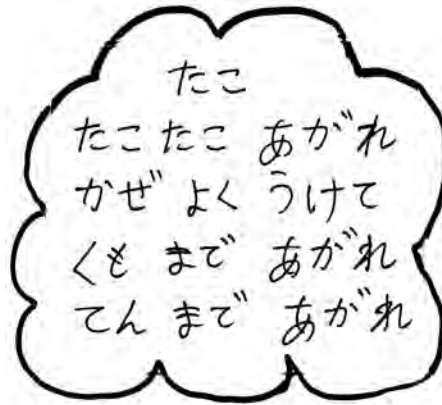 たこ
たこ たこ あがれ
かぜ よく うけて
くも まで あがれ
てん まで あがれ